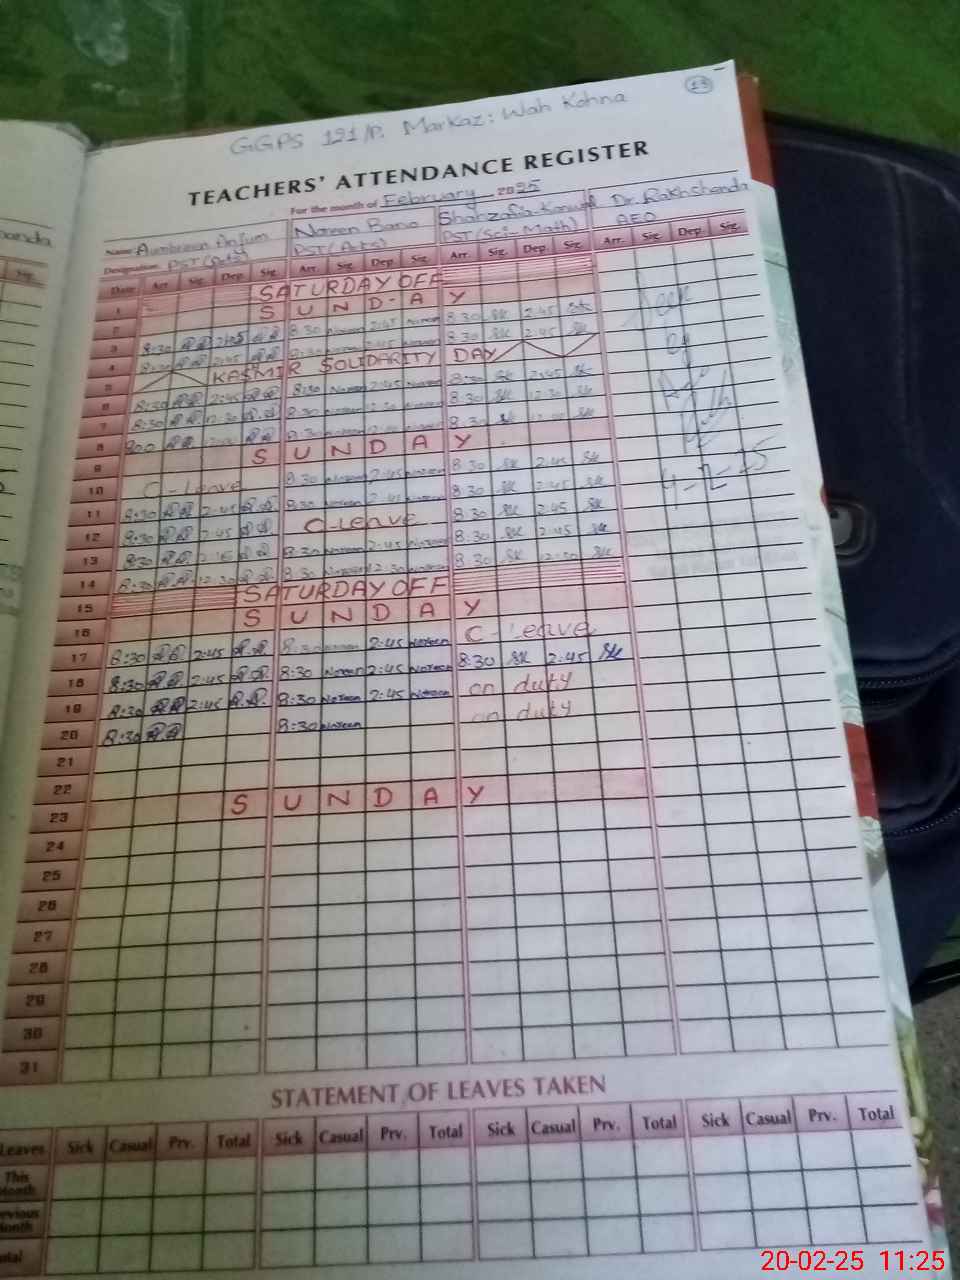 13
GGPS 191/P. Markaz: Wah Kohna
TEACHERS' ATTENDANCE REGISTER
For the month of February 2025
Name: Aumbreen Anjum Noreen Bano Shahzadia Kanwal Dr. Rakhshanda
Designation: PST (Arts) PST (Arts) PST (Sci-Math) AEO
Date Arr. Sig. Dep. Sig. Arr. Sig. Dep. Sig. Arr. Sig. Dep. Sig. Arr. Sig. Dep. Sig.
1 SATURDAY OFF
2 SUNDAY
3 8:30 2:45 8:30 Noreen 2:45 Noreen 8:30 SK 2:45 SK
4 8:30 2:45 8:30 Noreen 2:45 Noreen 8:30 SK 2:45 SK
5 KASMIR SOLIDARITY DAY
6 8:30 2:45 8:30 Noreen 2:45 Noreen 8:30 SK 2:45 SK
7 8:30 12:30 8:30 Noreen 12:30 Noreen 8:30 SK 12:30 SK
8 8:30 Noreen Noreen 8:30 SK SK
9 SUNDAY
10 C-Leave 8:30 Noreen 2:45 Noreen 8:30 SK 2:45 SK
11 8:30 2:45 8:30 Noreen 2:45 Noreen 8:30 SK 2:45 SK
12 8:30 2:45 C-Leave 8:30 SK 2:45 SK
13 8:30 2:45 8:30 Noreen 2:45 Noreen 8:30 SK 2:45 SK
14 8:30 12:30 8:30 Noreen 12:30 Noreen 8:30 SK 12:30 SK
15 SATURDAY OFF
16 SUNDAY
17 8:30 2:45 8:30 Noreen 2:45 Noreen C-Leave
18 8:30 2:45 8:30 Noreen 2:45 Noreen 8:30 SK 2:45 SK
19 8:30 2:45 8:30 Noreen 2:45 Noreen on duty
20 8:30 8:30 Noreen on duty
21
22
23 SUNDAY
24
25
26
27
28
29
30
31
Seen
by
4-2-25
STATEMENT OF LEAVES TAKEN
Leaves Sick Casual Prv. Total Sick Casual Prv. Total Sick Casual Prv. Total Sick Casual Prv. Total
This Month
Previous Month
Total
20-02-25 11:25